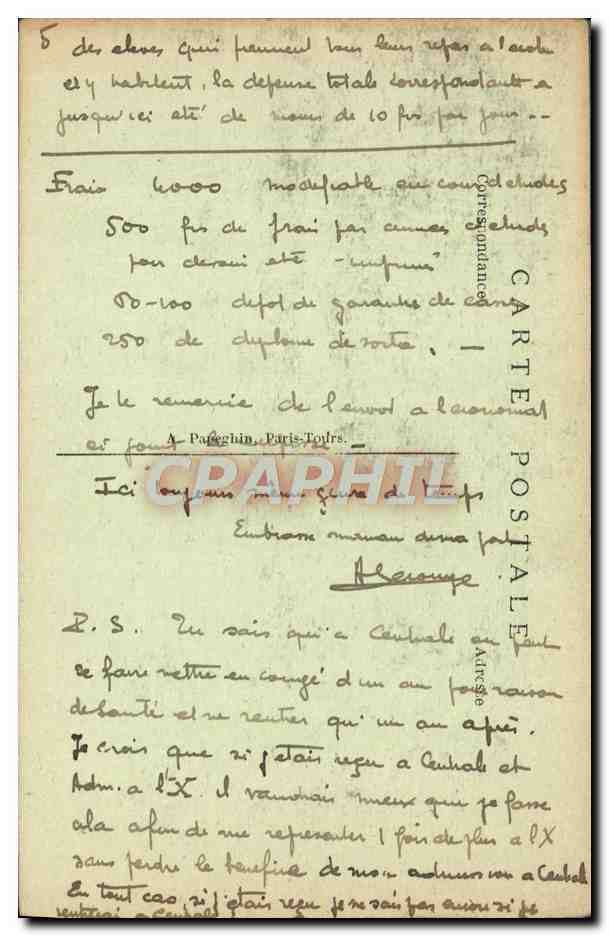 5
des eleves qui prennent tous leurs repas a l'ecole
et y habitent, la depense totale correspondante a
jusqu'ici eté de moins de 10 frs par jour --
Frais 4000 modifiable en cours d'etudes
500 frs de frais par annees d'etudes
pour devoirs etc - imprimés
80-100 depot de garantie de casse
250 de diplome de sortie. —
Je te remercie de l'envoi a l'economat
ci joint
A. Papeghin, Paris-Tours.
CPARPHIL
Ici toujours même genre de temps
Embrasse maman de ma part
P. S. Tu sais qu'a Centrale on peut
se faire mettre en congé d'un an pour raison
de santé et ne rentrer qu'un an après.
Je crois que si j'etais reçu a Centrale et
Adm. a l'X il vaudrait mieux que je fasse
cela afin de me representer 1 fois de plus a l'X
sans perdre le benefice de mon admission a Centrale
En tout cas, si j'etais reçu je ne sais pas encore si je
rentrerai a Centrale
CARTE POSTALE
Correspondance
Adresse